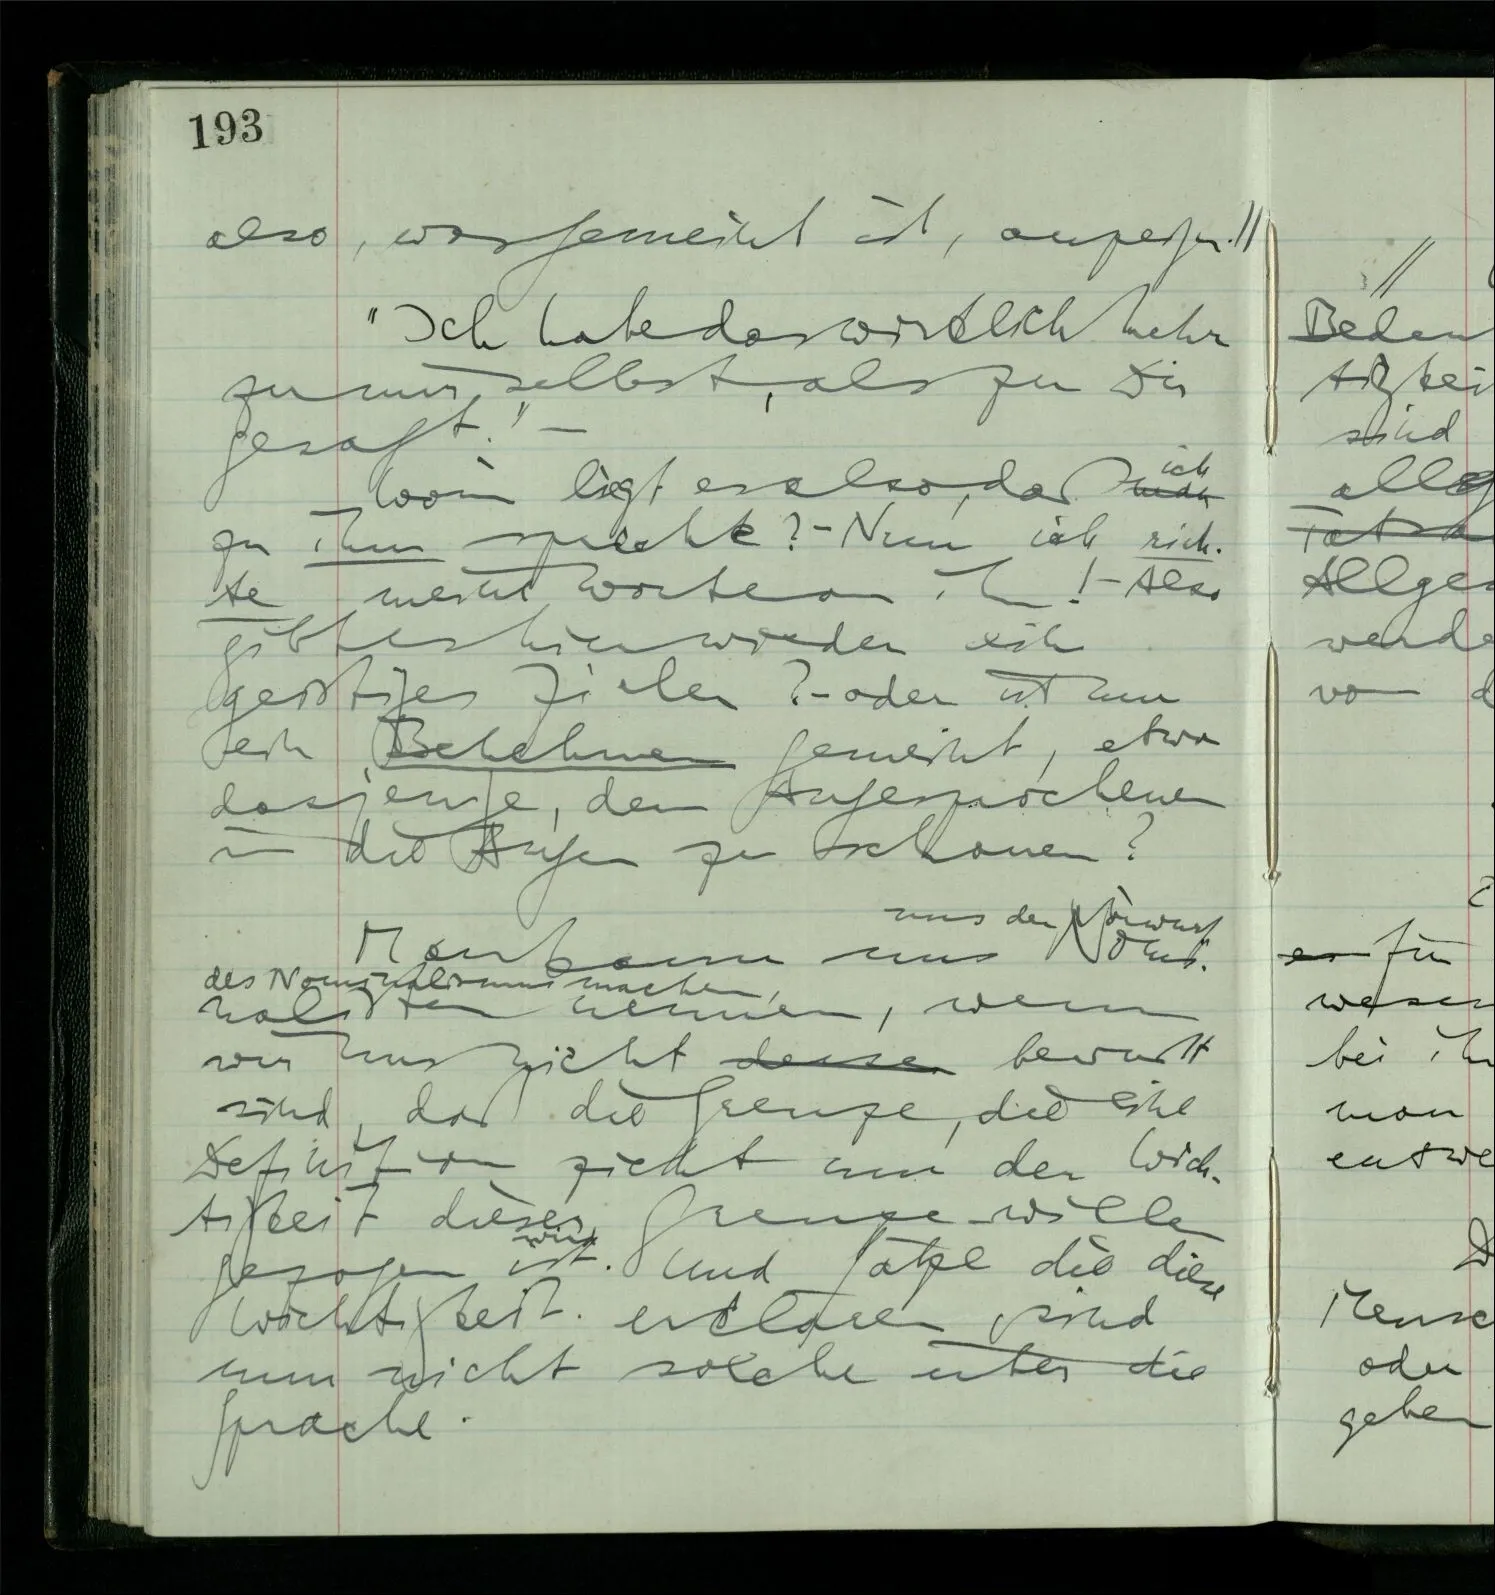 193
also, was gemeint ist, anzugeben. //
"Ich habe das wirklich mehr
zu mir selbst, als zu Dir
gesagt." –
Worin liegt es also, daß ich
zu ihm spreche? – Nun ich rich-
te meine Worte an ihn! – Also
gibt es hier wieder ein
geistiges Zielen? – oder ist nun
ein Benehmen gemeint, etwa
dasjenige, dem Angesprochenen
in die Augen zu schauen?
uns den Vorwurf
Man kann uns Nomi-
des Nominalismus machen,
nalisten nennen, wenn
wir uns nicht dessen bewußt
sind, daß die Grenze, die eine
Definition zieht um der Wich-
tigkeit dieser Grenze willen
wird
gezogen ist. Und Sätze die diese
Wichtigkeit erklären, sind
nun nicht solche über die
Sprache.
//
Bedeu
tigkei
sind
alle
Allgem
werde
vo d
er für
wesen
bei ih
man
entwe
Mensc
oder
geben